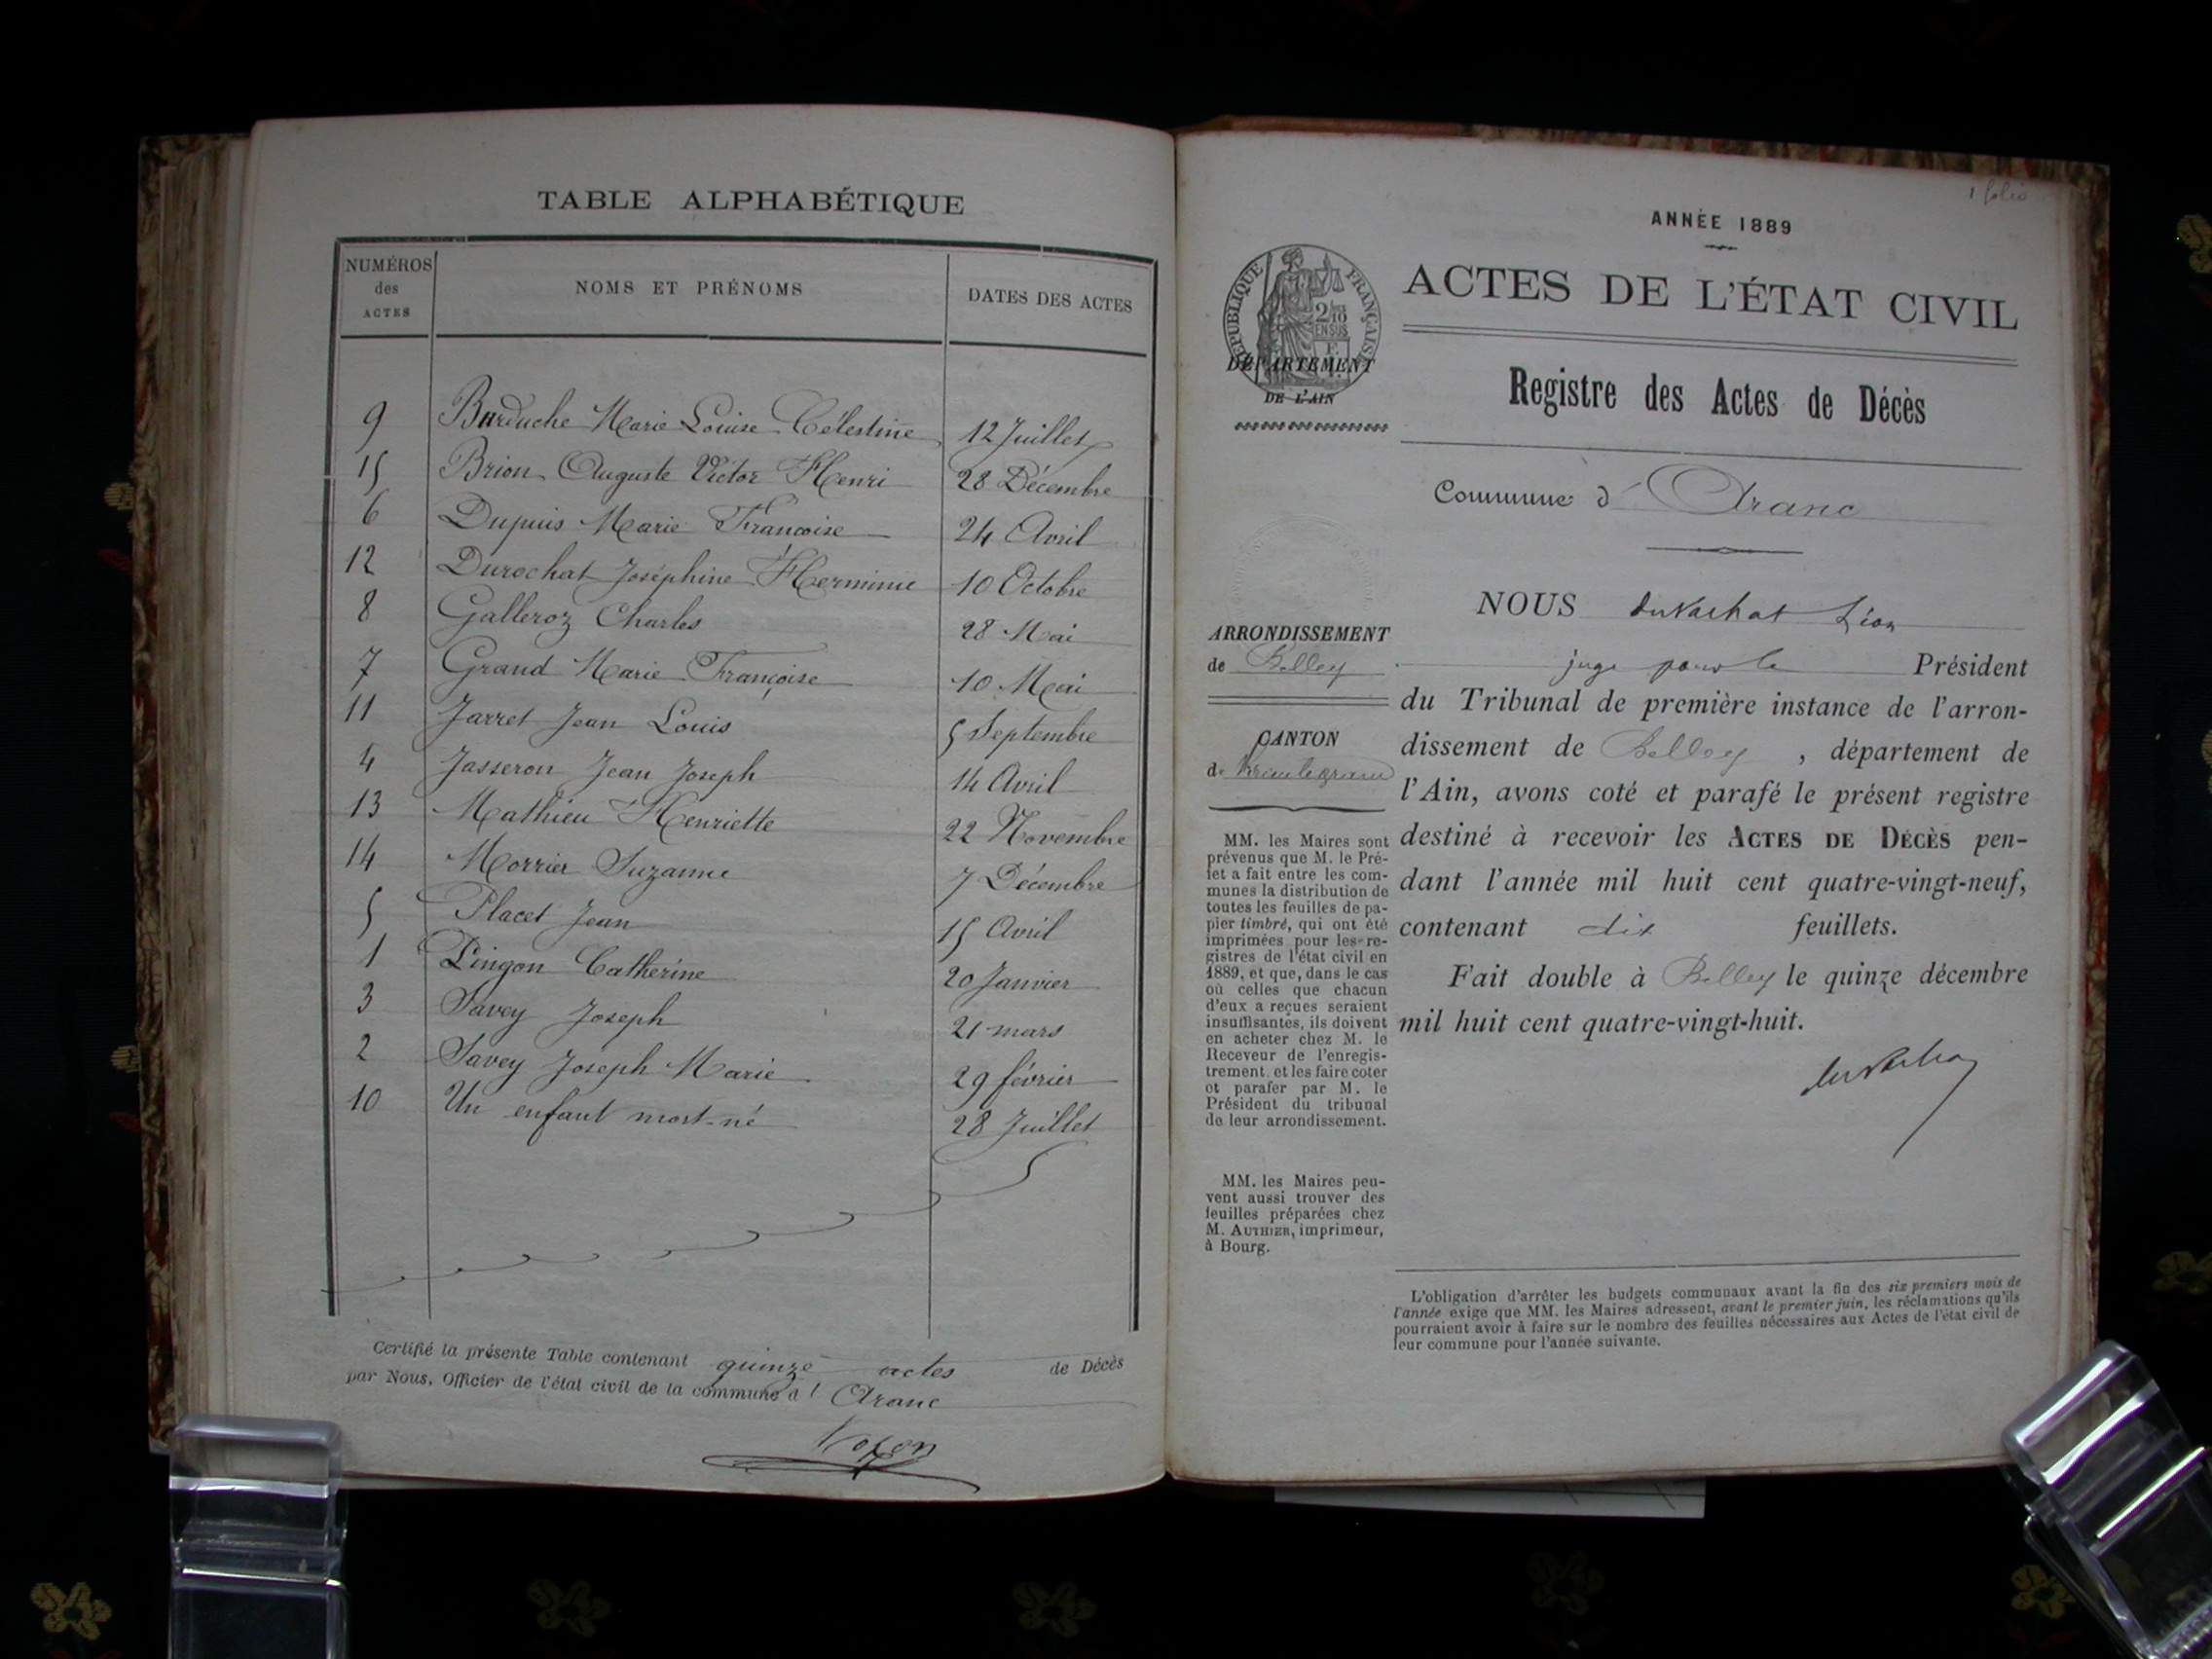 TABLE ALPHABÉTIQUE
NUMÉROS des ACTES
NOMS ET PRÉNOMS
DATES DES ACTES
9 Barduche Marie Louise Célestine 12 Juillet
15 Brion Auguste Victor Henri 28 Décembre
6 Dupuis Marie Françoise 24 Avril
12 Durochat Joséphine Herminie 10 Octobre
8 Galleroz Charles 28 Mai
7 Grand Marie Françoise 10 Mai
11 Jarret Jean Louis 5 Septembre
4 Jasseron Jean Joseph 14 Avril
13 Mathieu Henriette 22 Novembre
14 Morrier Suzanne 7 Décembre
5 Placet Jean 15 Avril
1 Pingon Catherine 20 Janvier
3 Savey Joseph 21 mars
2 Savey Joseph Marie 29 février
10 Un enfant mort-né 28 Juillet
Certifié la présente Table contenant quinze actes de Décès
par Nous, Officier de l'état civil de la commune d' Aranc
1 folio
ANNÉE 1889
ACTES DE L'ÉTAT CIVIL
RÉPUBLIQUE FRANÇAISE
2/10
EN SUS
DÉPARTEMENT
DE L'AIN
Registre des Actes de Décès
Commune d' Aranc
ARRONDISSEMENT
de Belley
CANTON
de
MM. les Maires sont
prévenus que M. le Pré-
fet a fait entre les com-
munes la distribution de
toutes les feuilles de pa-
pier timbré, qui ont été
imprimées pour les re-
gistres de l'état civil en
1889, et que, dans le cas
où celles que chacun
d'eux a reçues seraient
insuffisantes, ils doivent
en acheter chez M. le
Receveur de l'enregis-
trement, et les faire coter
et parafer par M. le
Président du tribunal
de leur arrondissement.
MM. les Maires peu-
vent aussi trouver des
feuilles préparées chez
M. AUTHIER, imprimeur,
à Bourg.
NOUS Léon
juge pour le Président
du Tribunal de première instance de l'arron-
dissement de Belley, département de
l'Ain, avons coté et parafé le présent registre
destiné à recevoir les ACTES DE DÉCÈS pen-
dant l'année mil huit cent quatre-vingt-neuf,
contenant dix feuillets.
Fait double à Belley le quinze décembre
mil huit cent quatre-vingt-huit.
L'obligation d'arrêter les budgets communaux avant la fin des six premiers mois de
l'année exige que MM. les Maires adressent, avant le premier juin, les réclamations qu'ils
pourraient avoir à faire sur le nombre des feuilles nécessaires aux Actes de l'état civil de
leur commune pour l'année suivante.